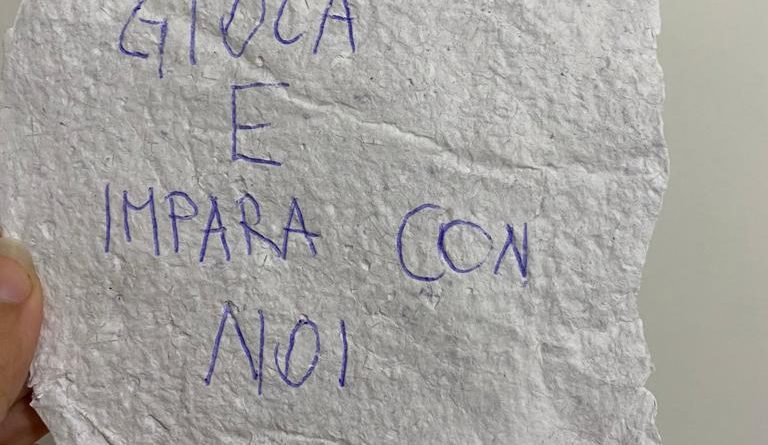 GIOCA
E
IMPARA CON
NOI